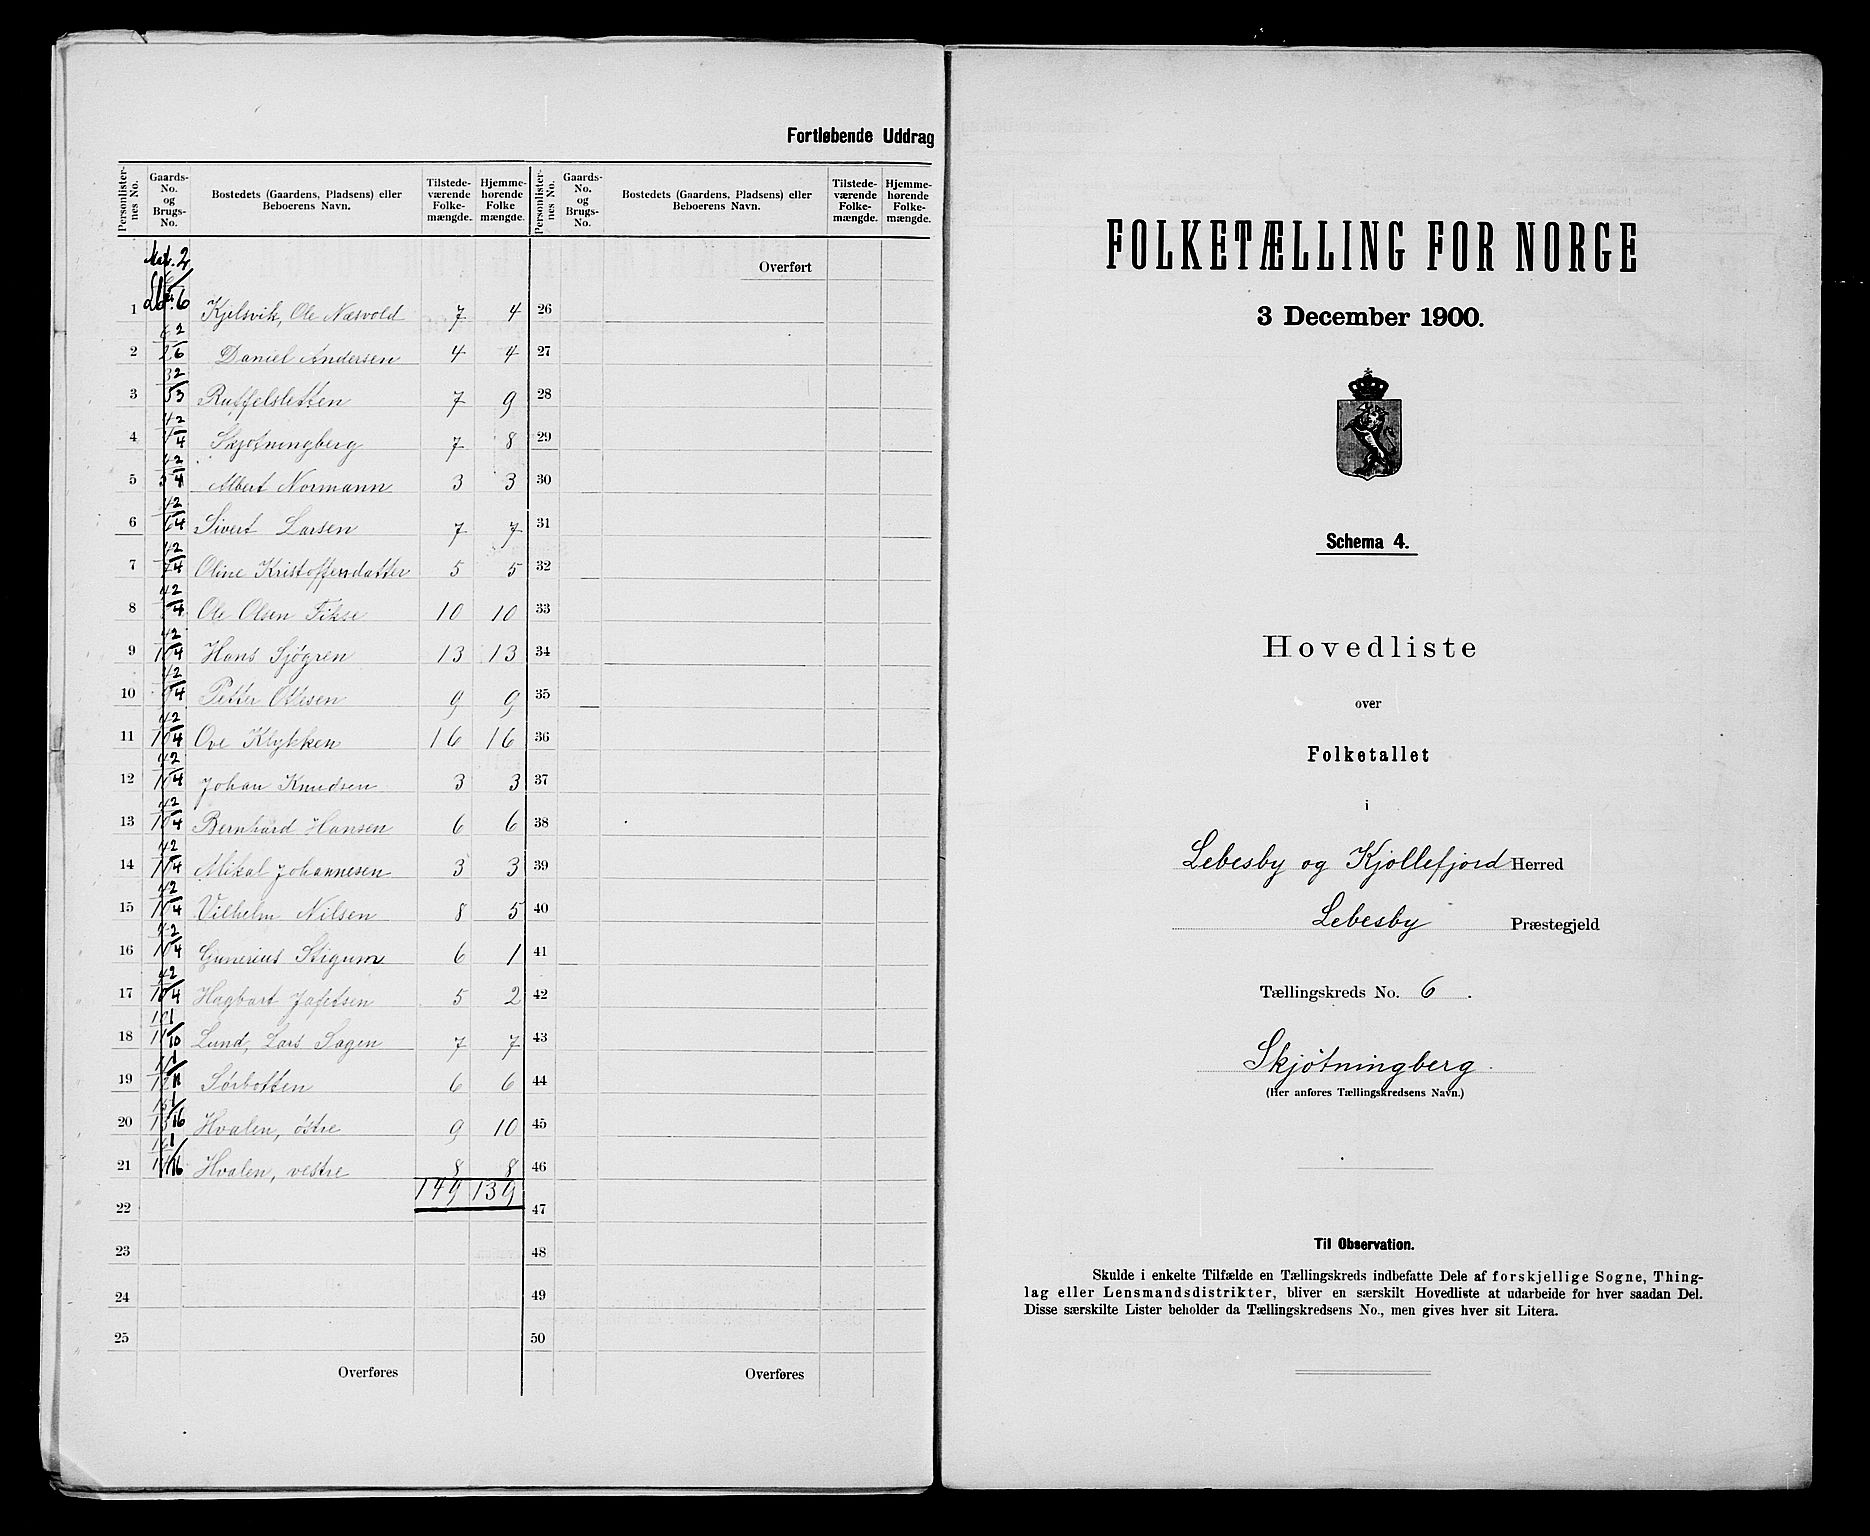 Fortløbende Uddrag
Personlisternes No. Gaards-No. og Brugs-No. Bostedets (Gaardens, Pladsens) eller Beboerens Navn. Tilstedeværende Folkemængde. Hjemmehørende Folkemængde. Personlisternes No. Gaards-No. og Brugs-No. Bostedets (Gaardens, Pladsens) eller Beboerens Navn. Tilstedeværende Folkemængde. Hjemmehørende Folkemængde.
Overført
1 Kjelsvik, Ole Næsvold 7 4 26
2 Daniel Andersen 4 4 27
3 Ruffelsletten 7 9 28
4 Skjøtningberg 7 8 29
5 Albert Normann 3 3 30
6 Sivert Larsen 7 7 31
7 Oline Kristoffersdatter 5 5 32
8 Ole Olsen Fikse 10 10 33
9 Hans Sjøgren 13 13 34
10 Petter Ottesen 9 9 35
11 Ove Klykken 16 16 36
12 Johan Knudsen 3 3 37
13 Bernhard Hansen 6 6 38
14 Mikal Johannesen 3 3 39
15 Vilhelm Nilsen 8 5 40
16 Gunerius Stigum 6 1 41
17 Hagbart Jafetsen 5 2 42
18 Lund, Lars Sagen 7 7 43
19 Sørbotten 6 6 44
20 Hvalen, østre 9 10 45
21 Hvalen, vestre 8 8 46
149 139
22 47
23 48
24 49
25 50
Overføres Overføres
FOLKETÆLLING FOR NORGE
3 December 1900.
Schema 4.
Hovedliste
over
Folketallet
i
Lebesby og Kjøllefjord Herred
Lebesby Præstegjeld
Tællingskreds No. 6.
Skjøtningberg.
(Her anføres Tællingskredsens Navn.)
Til Observation.
Skulde i enkelte Tilfælde en Tællingskreds indbefatte Dele af forskjellige Sogne, Thing-
lag eller Lensmandsdistrikter, bliver en særskilt Hovedliste at udarbeide for hver saadan Del.
Disse særskilte Lister beholder da Tællingskredsens No., men gives hver sit Litera.